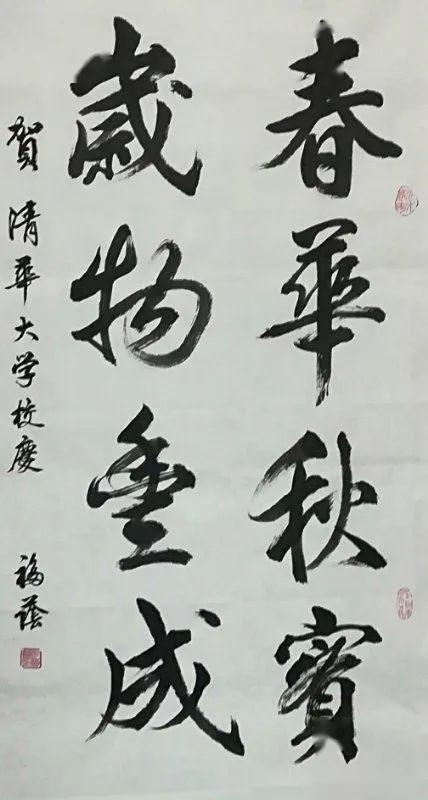 春華秋實
歲物豐成
賀清華大学校慶
福蔭